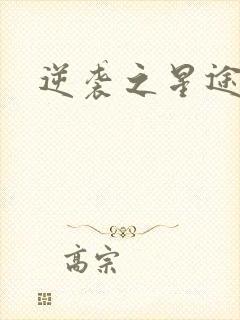 逆袭之星途
高宗